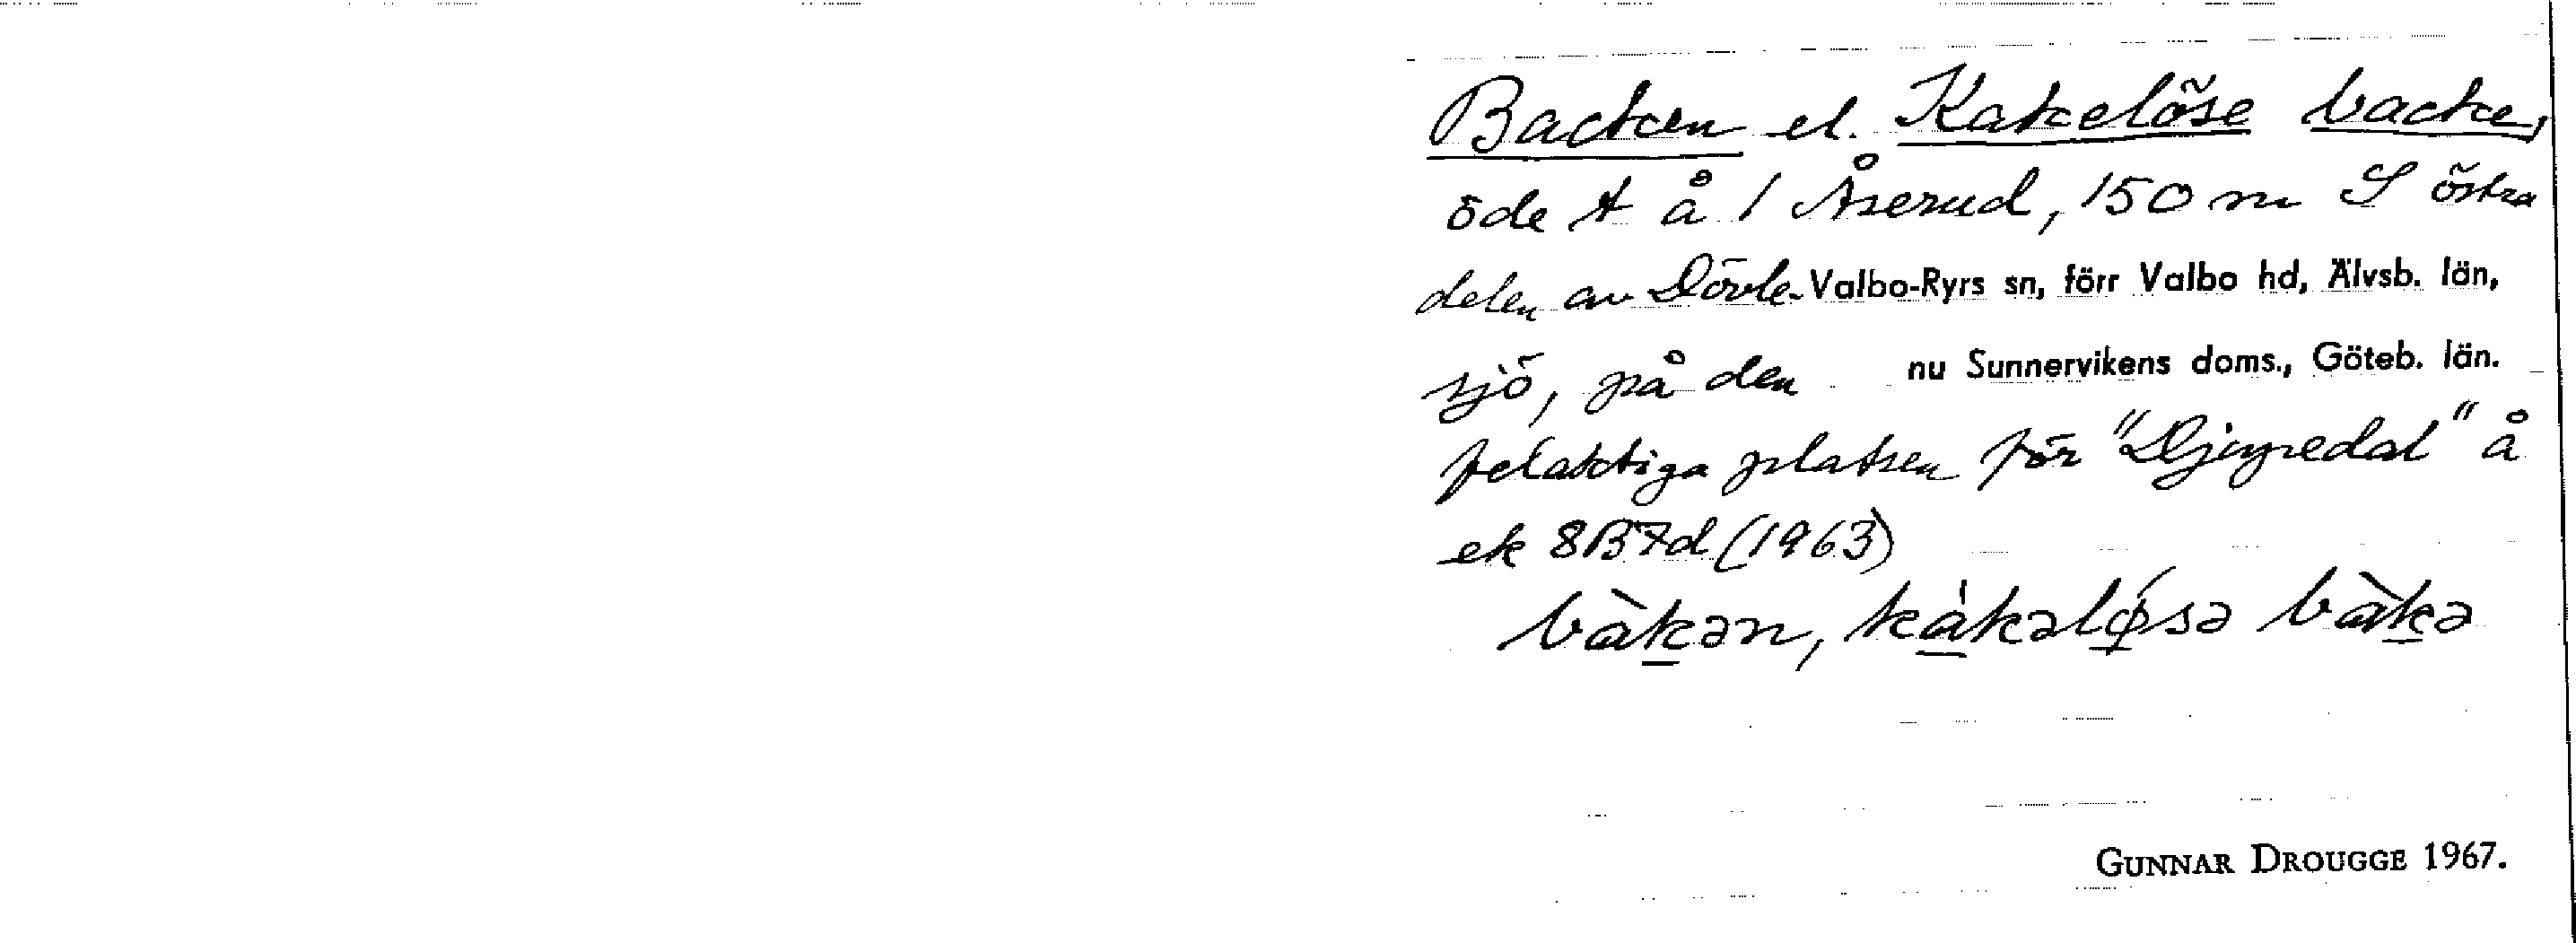 Backen el. Kakelöse backe,
öde t å 1 Åserud, 150 m S östra
delen av Dövle- Valbo-Ryrs sn, förr Valbo hd, Älvsb. län,
sjö, på den nu Sunnervikens doms., Göteb. län.
felaktiga platsen för "Djupedal" å
ek 8B7d (1963)
bàkən, kàkəlǿsə bàkə
GUNNAR DROUGGE 1967.